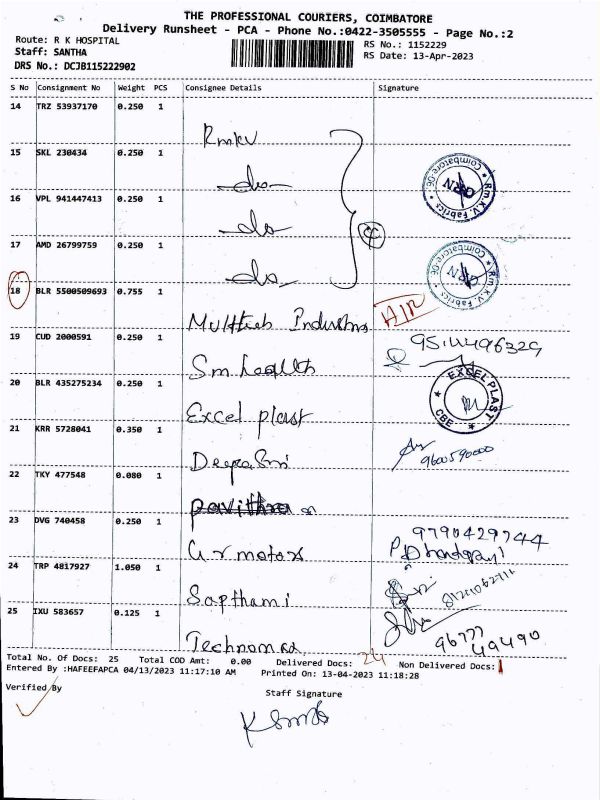 THE PROFESSIONAL COURIERS, COIMBATORE
Delivery Runsheet - PCA - Phone No.:0422-3505555 - Page No.:2
Route: R K HOSPITAL
Staff: SANTHA
DRS No.: DCJB115222902
RS No.: 1152229
RS Date: 13-Apr-2023
S No Consignment No Weight PCS Consignee Details Signature
14 TRZ 53937170 0.250 1
Rmkv
15 SKL 230434 0.250 1
do
16 VPL 941447413 0.250 1
do
17 AMD 26799759 0.250 1
do
Coimbatore-06 * R.m.K.V. Fabrics * GRN
Coimbatore-06 * R.m.K.V. Fabrics * GRN
18 BLR 5500509693 0.755 1
19 CUD 2000591 0.250 1
Sm health
20 BLR 435275234 0.250 1
Excel plast
EXCEL PLAST * CBE *
21 KRR 5728041 0.350 1
9600590000
22 TKY 477548 0.080 1
23 DVG 740458 0.250 1
G r motors
9790429744
24 TRP 4817927 1.050 1
Sapthami
25 IXU 583657 0.125 1
96777
49490
Total No. Of Docs: 25 Total COD Amt: 0.00 Delivered Docs: 24 Non Delivered Docs: 1
Entered By :HAFEEFAPCA 04/13/2023 11:17:10 AM Printed On: 13-04-2023 11:18:28
Verified By
Staff Signature